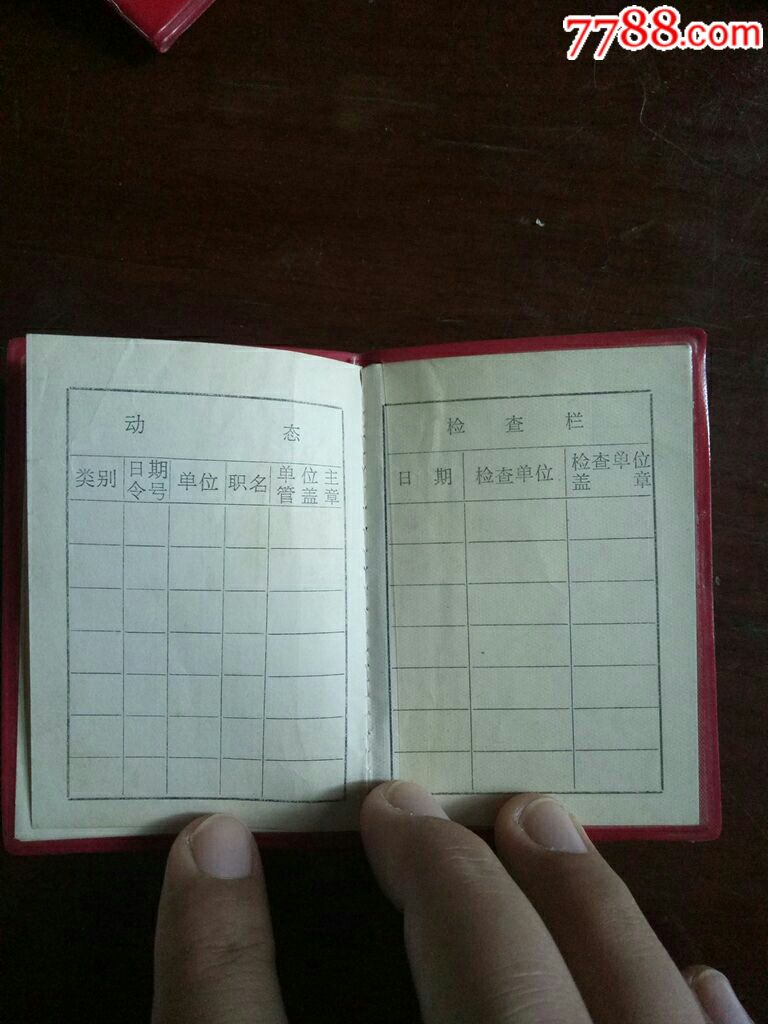 7788.com
动 态
类别 日期令号 单位 职名 单位主管盖章
检 查 栏
日 期 检查单位 检查单位盖章